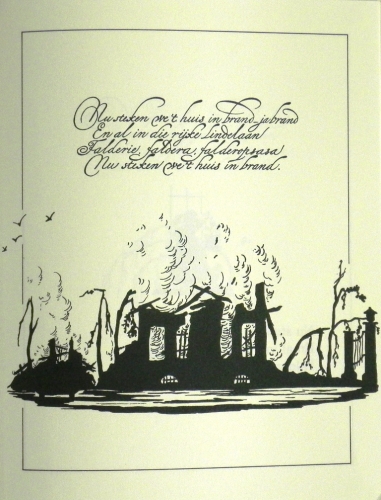 Nu steken we 't huis in brand, ja brand
En al in die rijke Lindelaan
Falderie, faldera, falderopsasa
Nu steken we 't huis in brand.